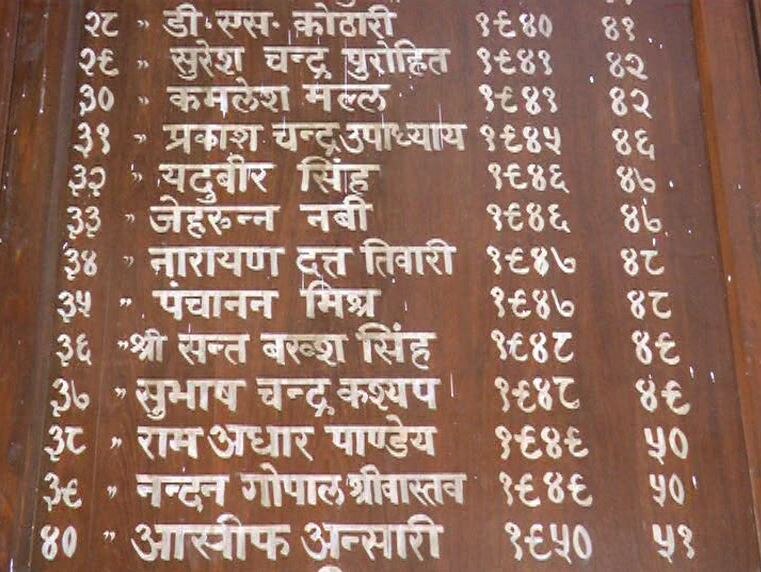 २८ " डी.एस. कोठारी १९४० ४१
२९ " सुरेश चन्द्र पुरोहित १९४१ ४२
३० " कमलेश मल्ल १९४१ ४२
३१ " प्रकाश चन्द्र उपाध्याय १९४५ ४६
३२ " यदुबीर सिंह १९४६ ४७
३३ " जेहरुन्न नबी १९४६ ४७
३४ " नारायण दत्त तिवारी १९४७ ४८
३५ " पंचानन मिश्र १९४७ ४८
३६ " श्री सन्त बख्श सिंह १९४८ ४९
३७ " सुभाष चन्द्र कश्यप १९४८ ४९
३८ " राम अधार पाण्डेय १९४९ ५०
३९ " नन्दन गोपाल श्रीवास्तव १९४९ ५०
४० " आसीफ अन्सारी १९५० ५१